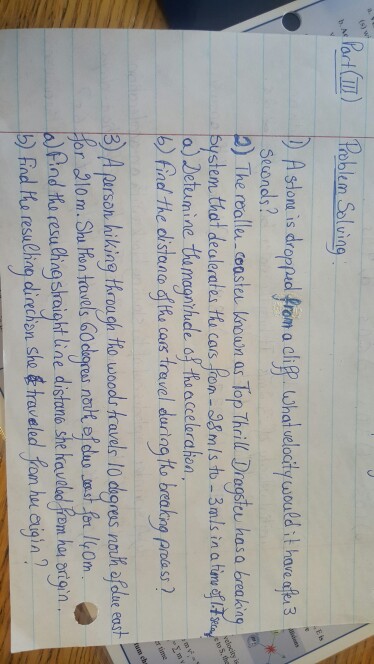 Part (III) Problem Solving:
1) A stone is dropped from a cliff. What velocity would it have after 3
seconds?
2) The roaller coaster known as Top Thrill Dragster has a breaking
System that decelerates the cars from -28 m/s to -3 m/s in a time of
a) Determine the magnitude of the acceleration.
b) find the distance of the cars travel during the breaking process?
3) A person hiking through the woods travels 10 degrees north of due east
for 210m. She then travels 60 degrees north of due east for 140m.
a) find the resulting straight line distance she traveled from her origin.
b) find the resulting direction she traveled from her origin?